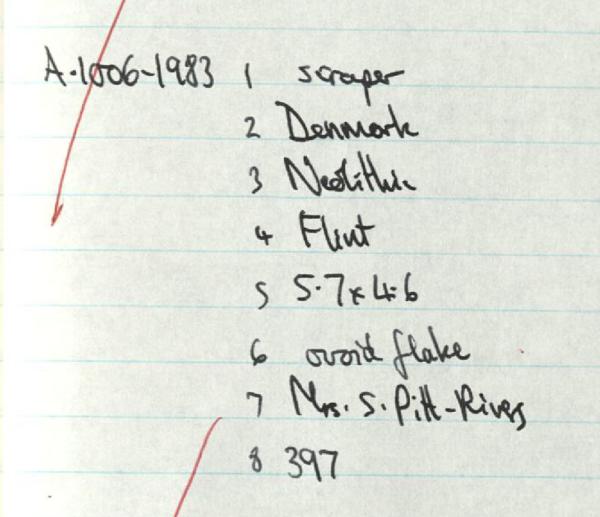 A.1006-1983 1 scraper
2 Denmark
3 Neolithic
4 Flint
5 5.7 x 4.6
6 ovoid flake
7 Mrs. S. Pitt-Rivers
8 397